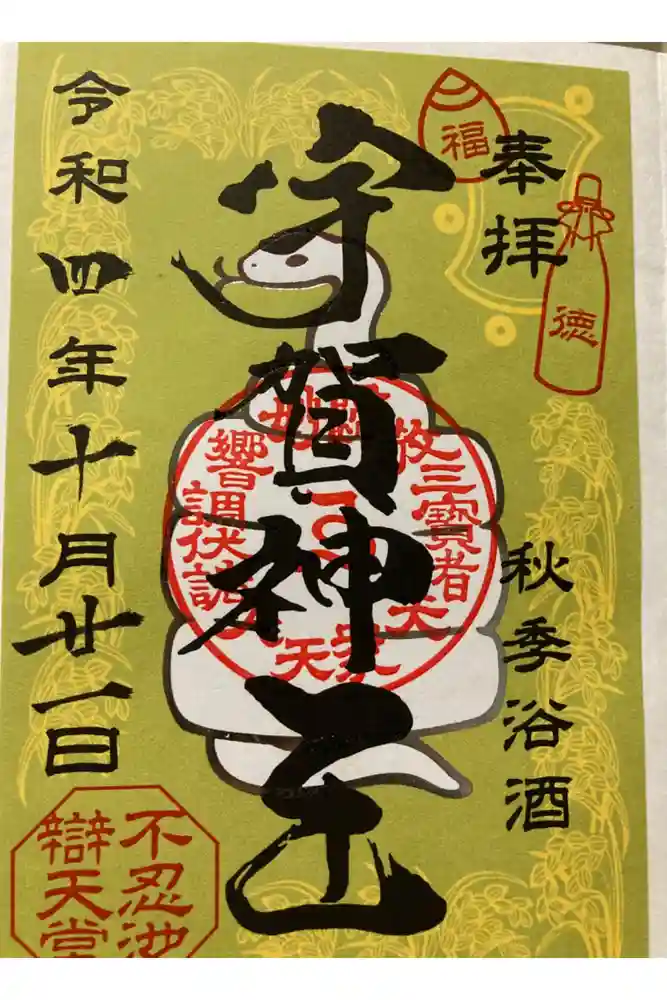 奉拝
福
徳
秋季浴酒
宇賀神王
三寶者
響調伏諸
令和四年十月廿一日
不忍池
辯天堂